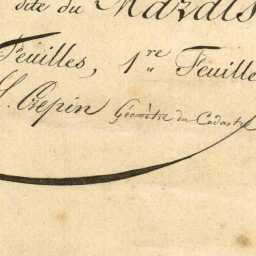 dite du Marais
Feuilles, 1re Feuille
Crepin Géomètre du Cadastre